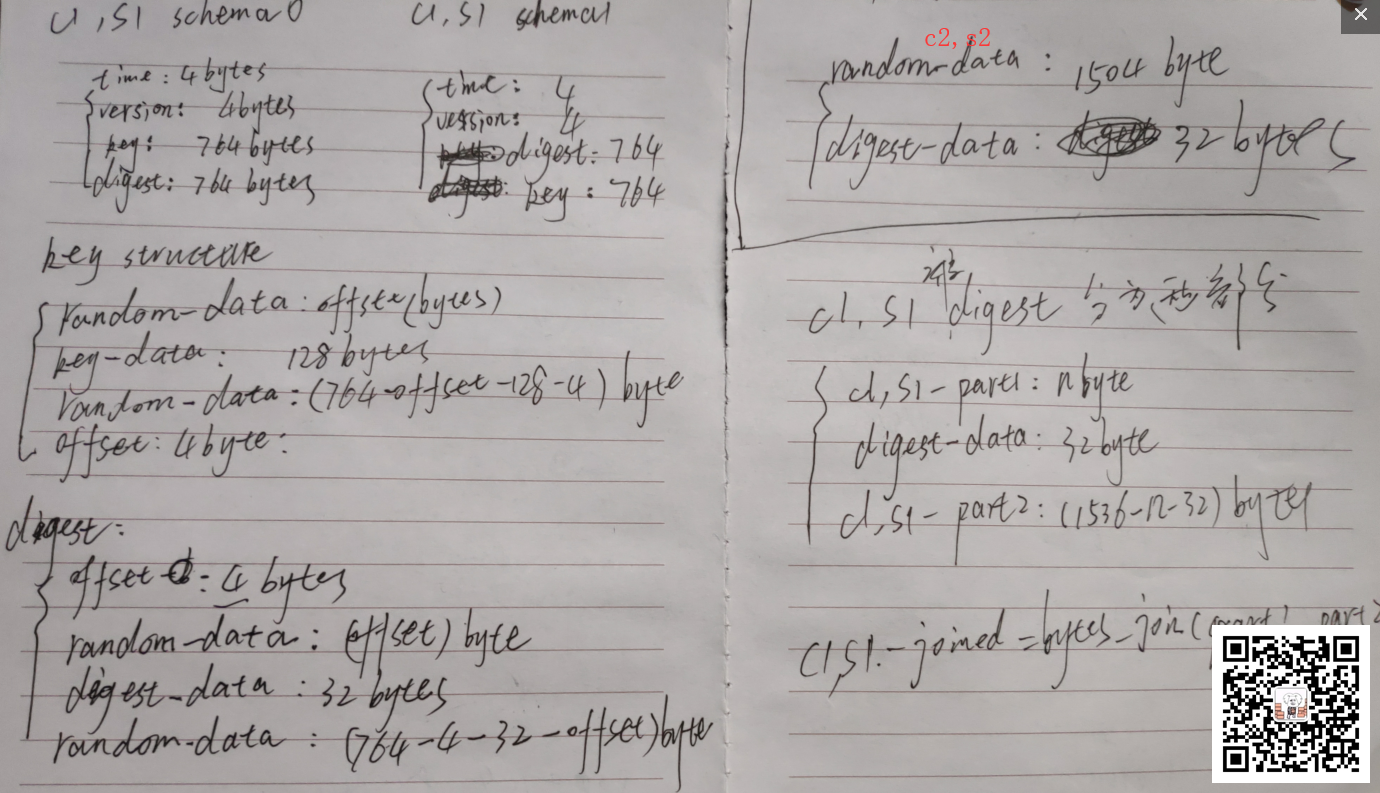 C1,S1 schema0
time: 4bytes
version: 4bytes
key: 764bytes
digest: 764 bytes
C1,S1 schema1
time: 4
version: 4
digest: 764
key: 764
key structure
random-data: offset(bytes)
key-data: 128bytes
random-data: (764-offset-128-4) byte
offset: 4byte:
digest:
offset: 4 bytes
random-data: (offset) byte
digest-data: 32bytes
random-data: (764-4-32-offset)byte
c2,s2
random-data: 1504 byte
digest-data: 32 bytes
C1,S1 digest 分为
C1,S1-part1: n byte
digest-data: 32byte
C1,S1-part2: (1536-n-32) bytes
C1,S1-joined=bytes_join(part1, part2